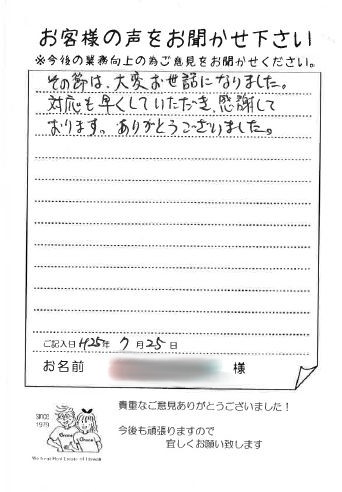 お客様の声をお聞かせ下さい
※今後の業務向上の為ご意見をお聞かせください。
その節は、大変お世話になりました。
対応も早くしていただき、感謝して
おります。ありがとうございました。
ご記入日 H25年 7月 25日
お名前 様
貴重なご意見ありがとうございました！
SINCE
1979
今後も頑張りますので
宜しくお願い致します